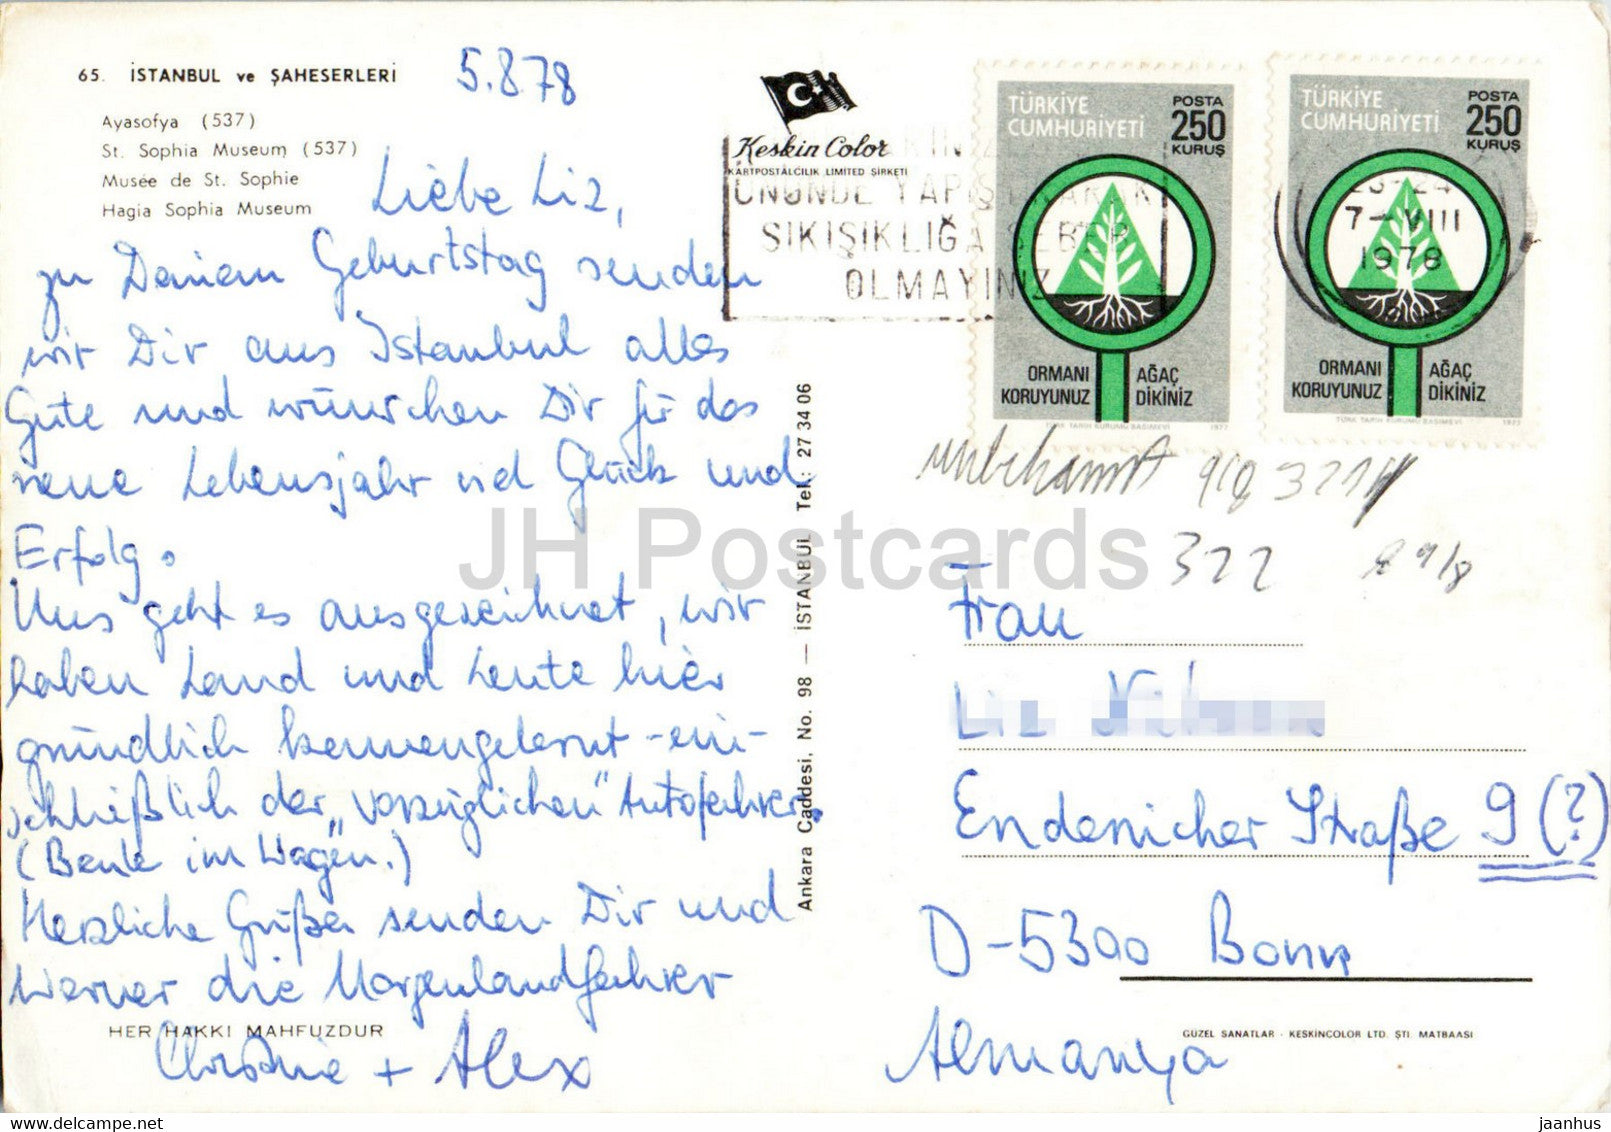 65. İSTANBUL ve ŞAHESERLERİ
Ayasofya (537)
St. Sophia Museum (537)
Musée de St. Sophie
Hagia Sophia Museum
5.8.78
Liebe Liz,
zu Deinem Geburtstag senden
wir Dir aus Istanbul alles
Gute und wünschen Dir für das
neue Lebensjahr viel Glück und
Erfolg.
Uns geht es ausgezeichnet, wir
haben Land und Leute hier
gründlich kennengelernt - ein-
schließlich der „vorzüglichen" Autofahrer.
(Beule im Wagen.)
Herzliche Grüße senden Dir und
Werner die Morgenlandfahrer
Christine + Alex
HER HAKKI MAHFUZDUR
Keskin Color
KARTPOSTALCILIK LIMITED ŞİRKETİ
Ankara Caddesi, No. 98 — İSTANBUL Tel.: 27 34 06
ÖNÜNDE YAPIŞTIRARAK
SIKIŞIKLIĞA SEBEP
OLMAYINIZ
TÜRKİYE
CUMHURİYETİ
POSTA
250
KURUŞ
ORMANI
KORUYUNUZ
AĞAÇ
DİKİNİZ
TÜRK TARİH KURUMU BASIMEVİ 1977
TÜRKİYE
CUMHURİYETİ
POSTA
250
KURUŞ
23-24
7-VIII
1978
ORMANI
KORUYUNUZ
AĞAÇ
DİKİNİZ
TÜRK TARİH KURUMU BASIMEVİ 1977
unbekannt
322
Frau
Liz
Endenicher Straße 9 (?)
D-5300 Bonn
Almanya
GÜZEL SANATLAR - KESKİNCOLOR LTD. ŞTİ. MATBAASI
JH Postcards
jaanhus